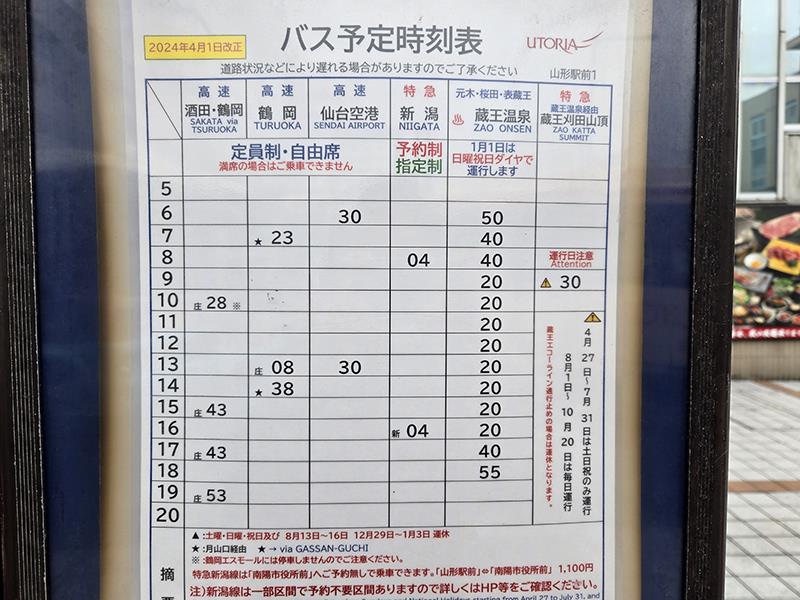 2024年4月1日改正
バス予定時刻表
UTORIA
道路状況などにより遅れる場合がありますのでご了承ください
山形駅前1
高速 高速 高速 特急 元木・桜田・表蔵王 特急
酒田・鶴岡 鶴岡 仙台空港 新潟 蔵王温泉 蔵王温泉経由 蔵王刈田山頂
SAKATA via TSURUOKA TURUOKA SENDAI AIRPORT NIIGATA ZAO ONSEN ZAO KATTA SUMMIT
定員制・自由席 予約制 1月1日は
満席の場合はご乗車できません 指定制 日曜祝日ダイヤで
運行します
5
6 30 50
7 ★ 23 40
8 04 40 運行日注意 Attention
9 20 30
10 庄 28 ※ 20
11 20
12 20
13 庄 08 30 20
14 ★ 38 20
15 庄 43 20
16 新 04 20
17 庄 43 40
18 55
19 庄 53
20
4月27日~7月31日は土日祝のみ運行
8月1日~10月20日は毎日運行
蔵王エコーライン通行止めの場合は運休となります。
摘
▲:土曜・日曜・祝日及び 8月13日~16日 12月29日~1月3日 運休
★:月山口経由 ★→via GASSAN-GUCHI
※:鶴岡エスモールには停車しませんのでご注意ください。
特急新潟線は「南陽市役所前」へご予約無しで乗車できます。「山形駅前」⇔「南陽市役所前」 1,100円
注)新潟線は一部区間で予約不要区間ありますので詳しくはHP等をご確認ください。
National Holidays starting from April 27 to July 31, and